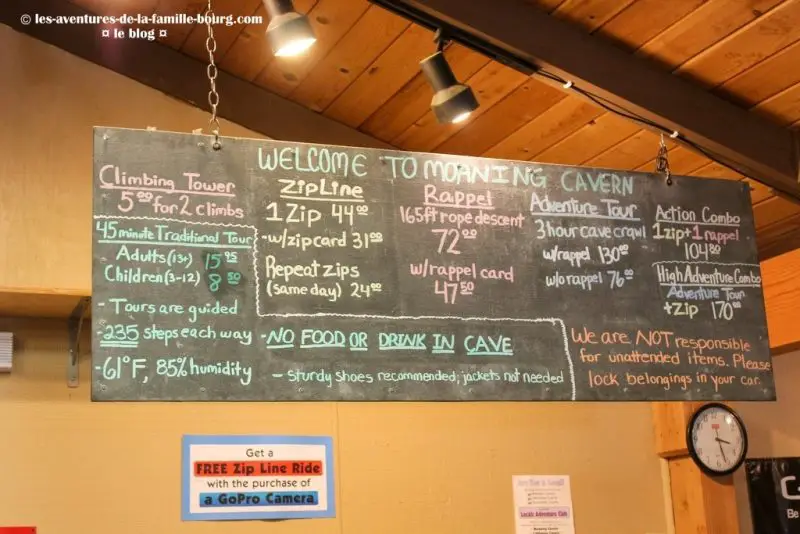 © les-aventures-de-la-famille-bourg.com
¤ le blog ¤
WELCOME TO MOANING CAVERN
Climbing Tower
5.00 for 2 climbs
45 minute Traditional Tour
Adults (13+) 15.95
Children (3-12) 8.50
- Tours are guided
- 235 steps each way
- 61°F, 85% humidity
ZipLine
1 Zip 44.00
- w/zip card 31.00
Repeat zips
(same day) 24.00
Rappel
165ft rope descent
72.00
w/rappel card
47.50
Adventure Tour
3 hour cave crawl
w/rappel 130.00
w/o rappel 76.00
Action Combo
1zip + 1 rappel
104.80
High Adventure Combo
Adventure Tour
+ Zip 170.00
- NO FOOD OR DRINK IN CAVE
- sturdy shoes recommended; jackets not needed
We are NOT responsible
for unattended items. Please
lock belongings in your car.
Get a
FREE Zip Line Ride
with the purchase of
a GoPro Camera
Locals Adventure Club
Be